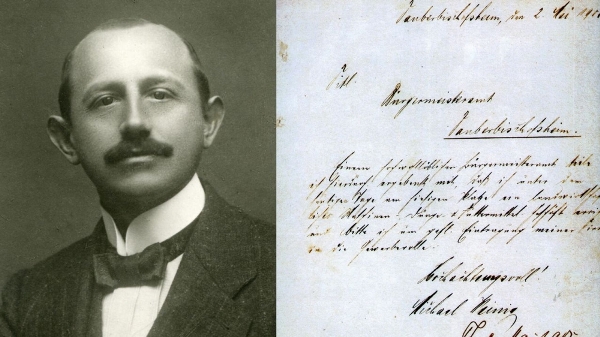 Tauberbischofsheim, den 2. Mai
Titl.
Bürgermeisteramt
Tauberbischofsheim.
Einem hochwohllöblichen Bürgermeisteramt teile
ich hierdurch ergebenst mit, daß ich unter dem
heutigen Tage am hiesigen Platze ein
Maschinen, Dünger &
und bitte ich um gefl. Eintragung meiner Firma
in die Gewerberolle.
Hochachtungsvoll!
Michael Weinig